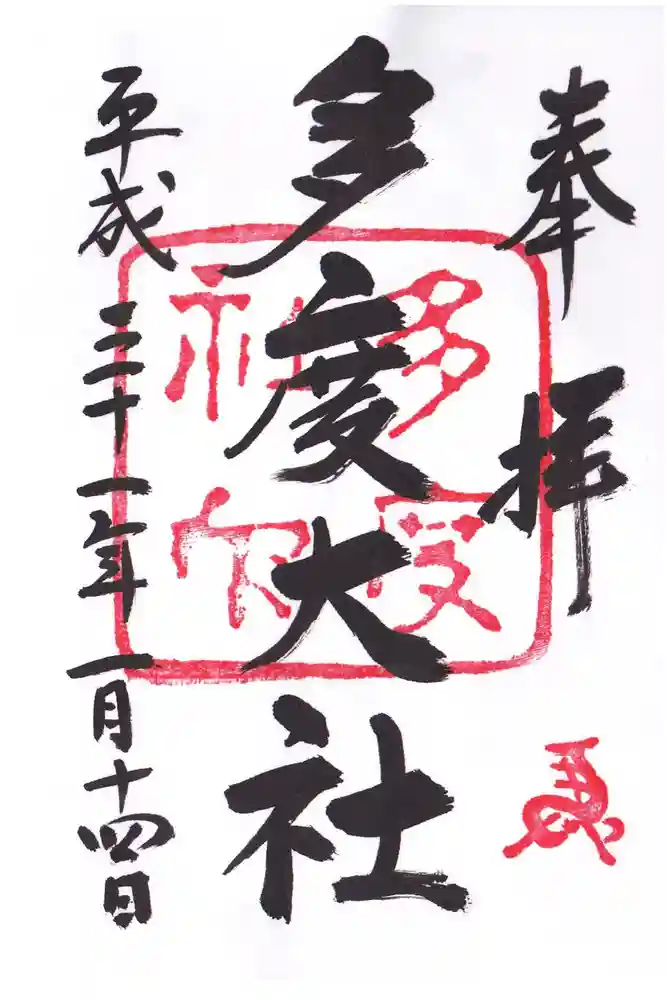 奉拝
多度大社
平成三十一年一月十四日
多度
社印